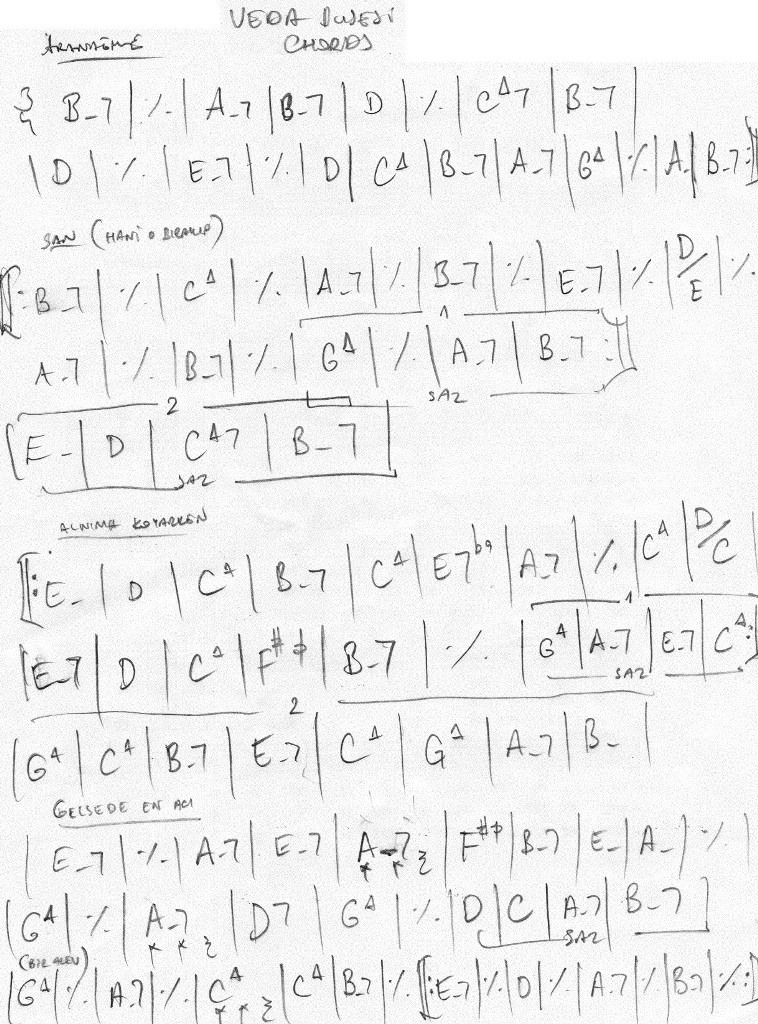 VEDA BUSESİ
CHORDS
ARANAĞME
B-7 | ٪ | A-7 | B-7 | D | ٪ | CΔ7 | B-7 |
| D | ٪ | E-7 | ٪ | D | CΔ | B-7 | A-7 | GΔ | ٪ | A- | B-7 :]
ŞAN (HANİ O BIRAKIP)
[: B-7 | ٪ | CΔ | ٪ | A-7 | ٪ | B-7 | ٪ | E-7 | ٪ | D/E | ٪
1
A-7 | ٪ | B-7 | ٪ | GΔ | ٪ | A-7 | B-7 :]
2 SAZ
[E- | D | CΔ7 | B-7 |
SAZ
ALNIMA KOYARKEN
[: E- | D | CΔ | B-7 | CΔ | E7b9 | A-7 | ٪ | CΔ | D/C
1
| E-7 | D | CΔ | F#ø | B-7 | ٪ | GΔ | A-7 | E-7 | CΔ :]
2 SAZ
| GΔ | CΔ | B-7 | E-7 | CΔ | GΔ | A-7 | B- |
GELSEDE EN ACI
| E-7 | ٪ | A-7 | E-7 | A-7 | F#ø | B-7 | E- | A- | ٪ |
| GΔ | ٪ | A-7 | D7 | GΔ | ٪ | D | C | A-7 | B-7 ]
SAZ
(BİR ALEV)
| GΔ | ٪ | A-7 | ٪ | CΔ | CΔ | B-7 | ٪ [: E-7 | ٪ | D | ٪ | A-7 | ٪ | B-7 | ٪ :]